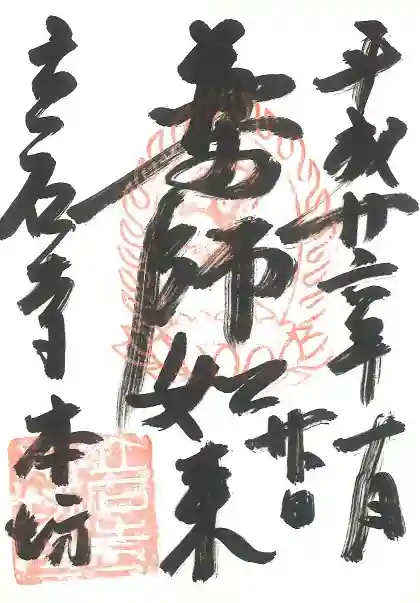 平成廿六年十一月
廿日
薬師如来
立石寺本坊